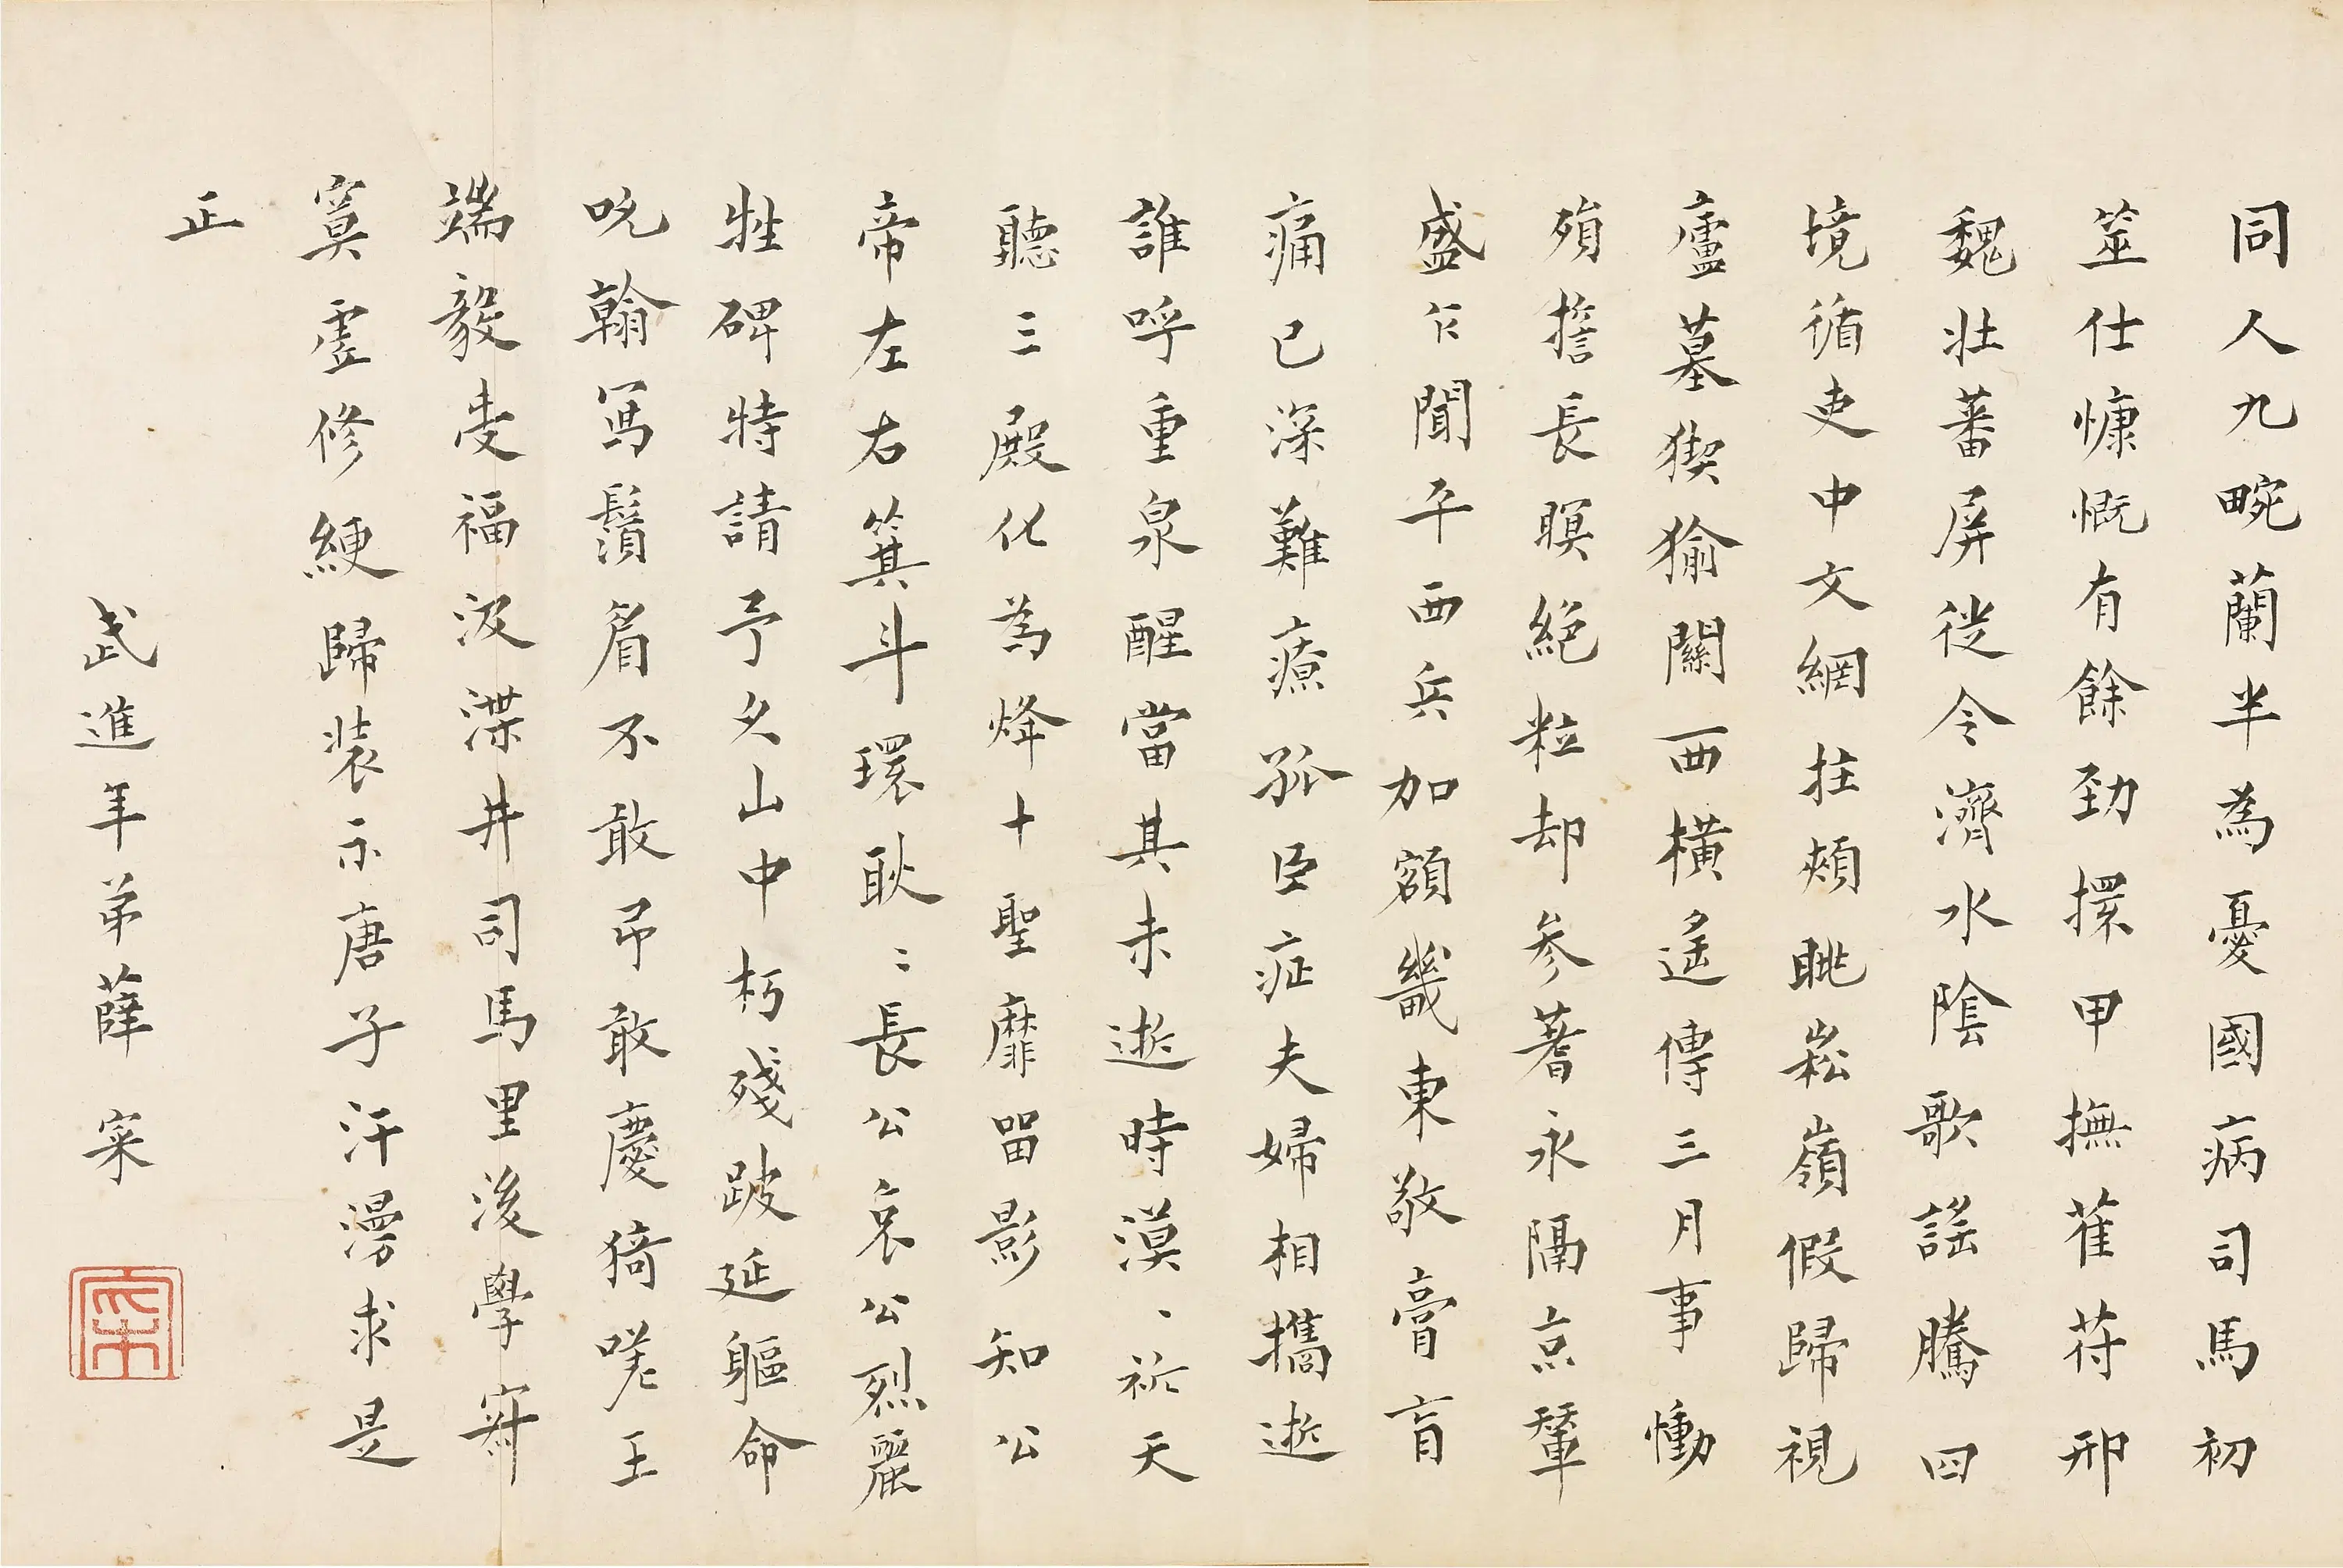 同人九畹蘭半為憂國病司馬初
筮仕慷慨有餘勁擐甲撫萑苻邢
魏壯蕃屏從令濟水陰歌謠騰四
境循吏中文網拄頰眺崧嶺假歸視
廬墓猰㺄關西橫遙傳三月事慟
殞擔長瞑絕粒却參蓍永隔京輦
盛乍聞平西兵加額畿東敬膏肓
痛已深難療孤臣症夫婦相攜逝
誰呼重泉醒當其未逝時漠、祈天
聽三殿化為烽十聖靡畱影知公
帝左右箕斗環耿〻長公哀公烈麗
牲碑特請予久山中朽殘跛延軀命
吮翰寫鬚眉不敢弔敢慶猗嗟王
端毅麦福汲渫井司馬里後學
寞虛修綆歸裝示唐子汗漫求是
正
武進年弟薛寀